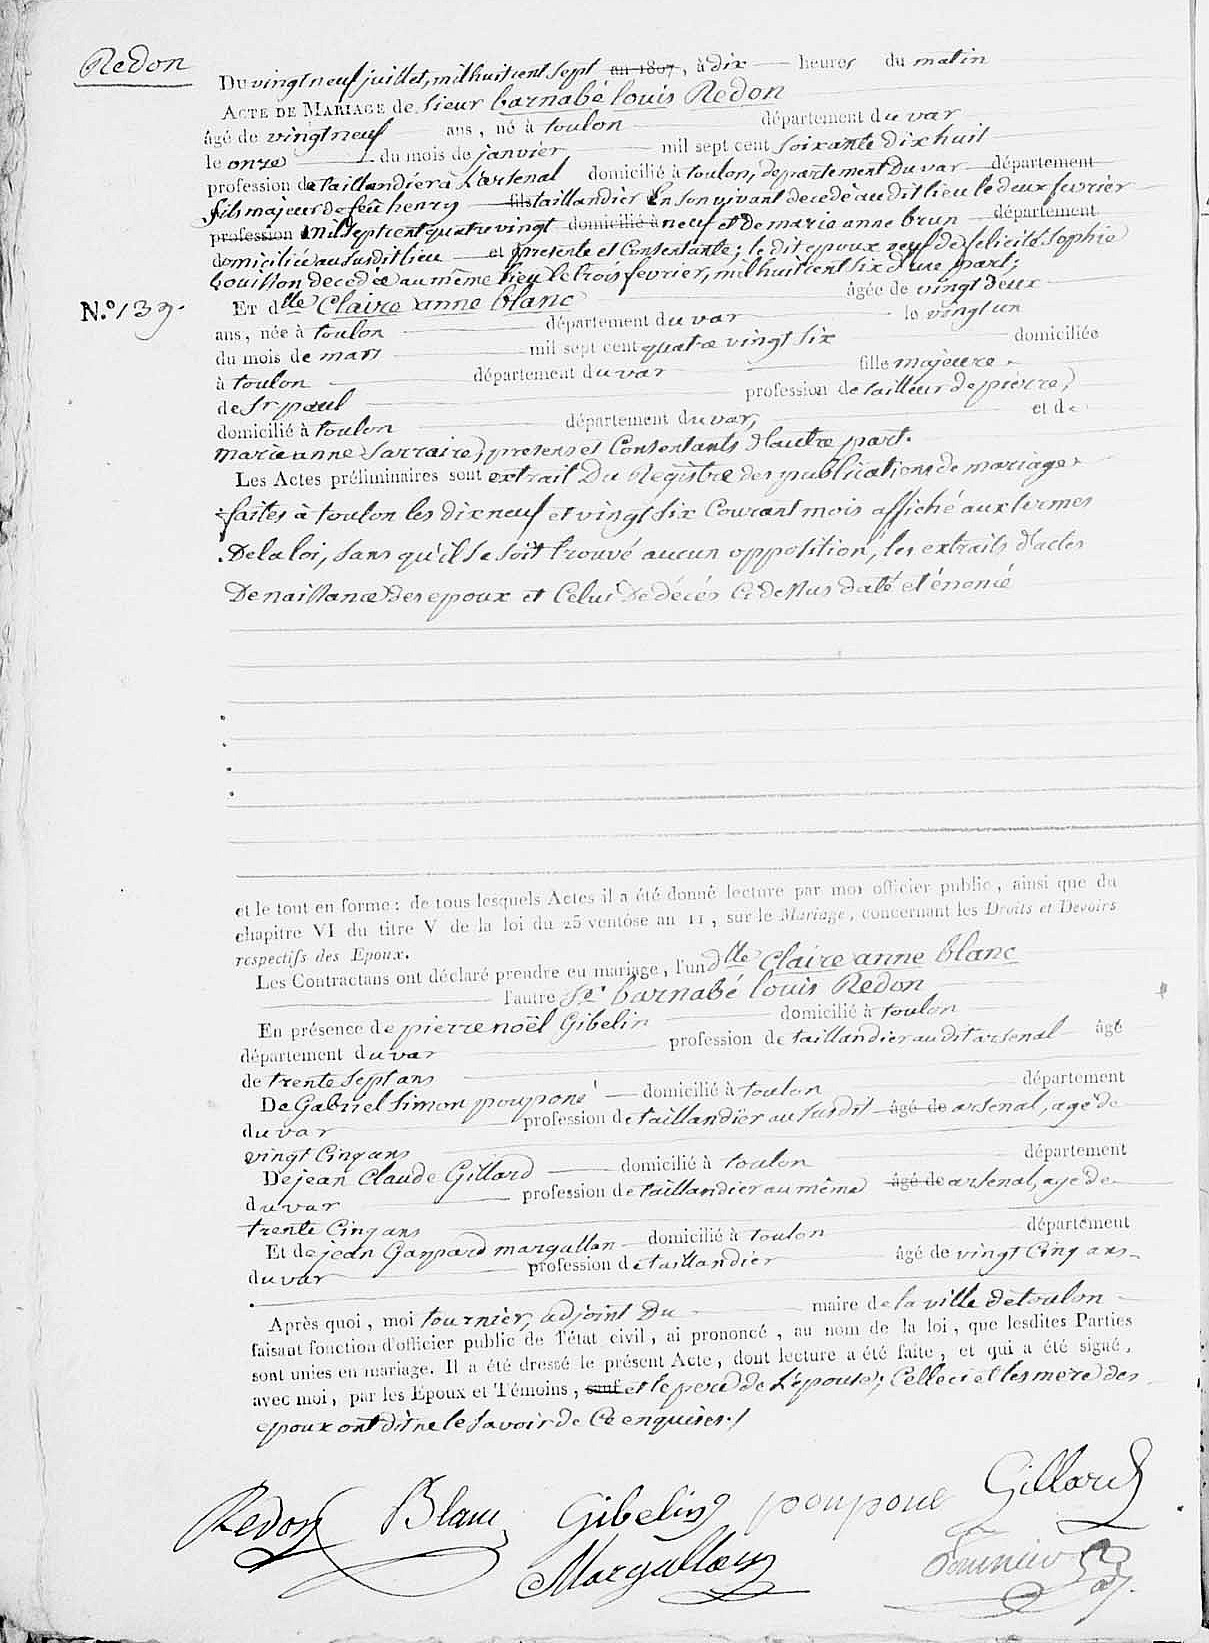 Redon
Du vingt neuf juillet, mil huit cent sept an 1807, à dix heures du matin
ACTE DE MARIAGE de sieur barnabé louis Redon
âgé de vingt neuf ans, né à toulon département du var
le onze du mois de janvier mil sept cent soixante dix huit
profession de taillandier à L'arsenal domicilié à toulon, departement Du var département
fils majeur de feû henry fils taillandier En son vivant decedé au dit lieu le deux fevrier
profession mil sept cent quatre vingt domicilié à neuf et de marie anne brun département
domiciliée au susdit lieu et presente et Consentante; le dit epoux veuf de felicité Sophie
bouisson decedée au même lieu le trois fevrier, mil huit cent six d'une part;
N.º 139.
ET dlle Claire anne blanc âgée de vingt deux
ans, née à toulon département du var le vingt un
du mois de mars mil sept cent quatre vingt six domiciliée
à toulon département du var fille majeure
de Sr paul profession de tailleur de pierre,
domicilié à toulon département du var, et de
marie anne Sarraire, presens et Consentants d'autre part.
Les Actes préliminaires sont extrait Du Registre des publications de mariage
faites à toulon les dix neuf et vingt six Courant mois affiché aux termes
De la loi, sans qu'il se soit trouvé aucun opposition, les extraits d'actes
De naissance des epoux et Celui De décés Ci dessus daté et énoncé
et le tout en forme : de tous lesquels Actes il a été donné lecture par moi officier public, ainsi que du
chapitre VI du titre V de la loi du 25 ventôse an 11, sur le Mariage, concernant les Droits et Devoirs
respectifs des Epoux.
Les Contractans ont déclaré prendre en mariage, l'un Dlle Claire anne blanc
l'autre Sr barnabé louis Redon
En présence de pierre noël Gibelin domicilié à toulon
département du var profession de taillandier au dit arsenal âgé
de trente sept ans
De Gabriel Simon pouponé domicilié à toulon département
du var profession de taillandier au susdit âgé de arsenal, agé de
vingt Cinq ans
De jean Claude Gillard domicilié à toulon département
du var profession de taillandier au même âgé de arsenal, agé de
trente Cinq ans
Et de jean Gaspard margallan domicilié à toulon département
du var profession de taillandier âgé de vingt Cinq ans
Après quoi, moi tournier, adjoint Du maire de la ville de toulon
faisant fonction d'officier public de l'état civil, ai prononcé, au nom de la loi, que lesdites Parties
sont unies en mariage. Il a été dressé le présent Acte, dont lecture a été faite, et qui a été signé,
avec moi, par les Epoux et Témoins, sauf et le pere de L'épouse; Celle ci et les mere des
epoux ont dit ne le savoir de Ce enquises./
Redon Blanc Gibelin poupone Gillard
Margallan Tournier adj.